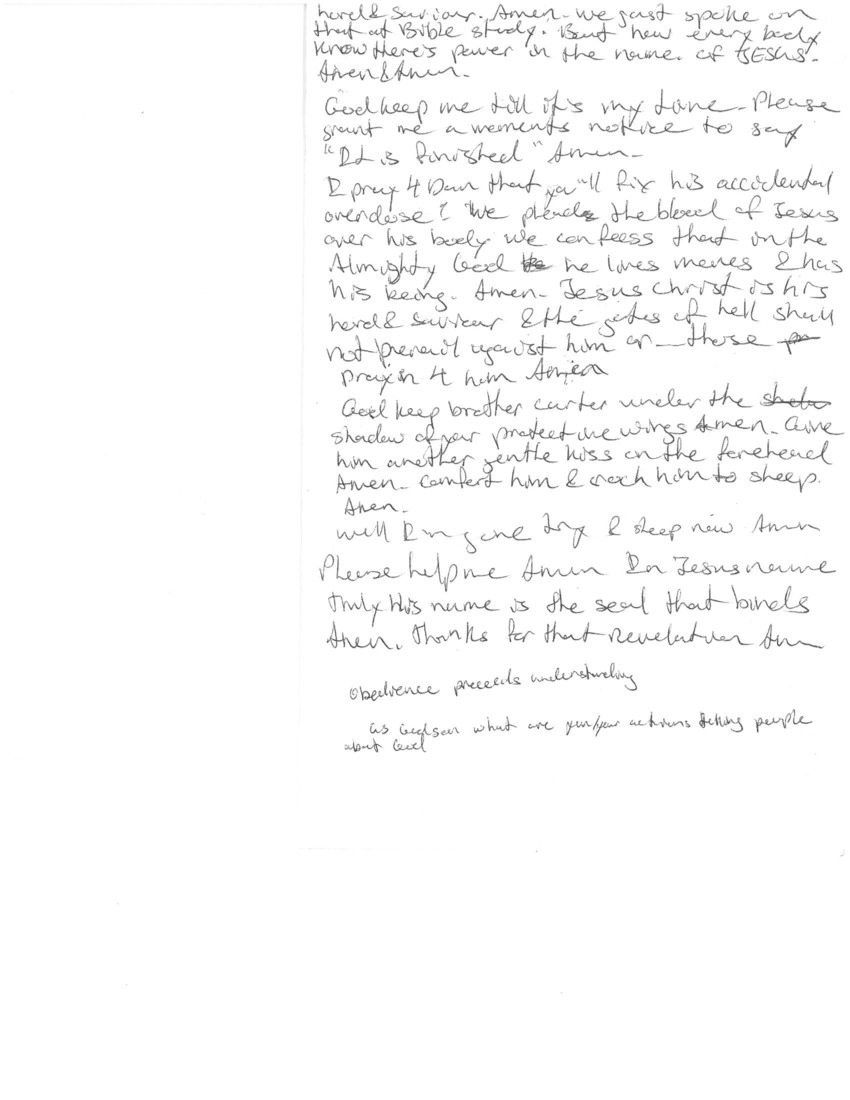 Lord & Saviour. Amen - we just spoke on
that at Bible study. But now every body
know there's power in the name. of JESUS -
Amen & Amen -
God keep me till it's my time - Please
grant me a moments notice to say
"It is finished" Amen -
I pray 4 Dan that you'll fix his accidental
overdose! We pleads the blood of Jesus
over his body we confeess that in the
Almighty God he lives moves & has
his being. Amen - Jesus Christ is his
Lord & Saviour & the gates of hell shall
not prevail against him or those
prayin 4 him Amen
God keep brother carter under the
shadow of your protective wings Amen - Give
him another gentle kiss on the forehead
Amen - Comfort him & rock him to sleep.
Amen -
Well I'm gone try & sleep now Amen
Please help me Amen In Jesus name
truly His name is the seal that binds
Amen. Thanks for that revelation Am
Obedience preceeds understanding
as God's son what are your actions telling people
about God